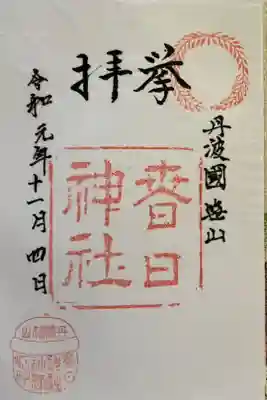 挙拝
丹波國
山
春日
神社
令和元年十一月四日